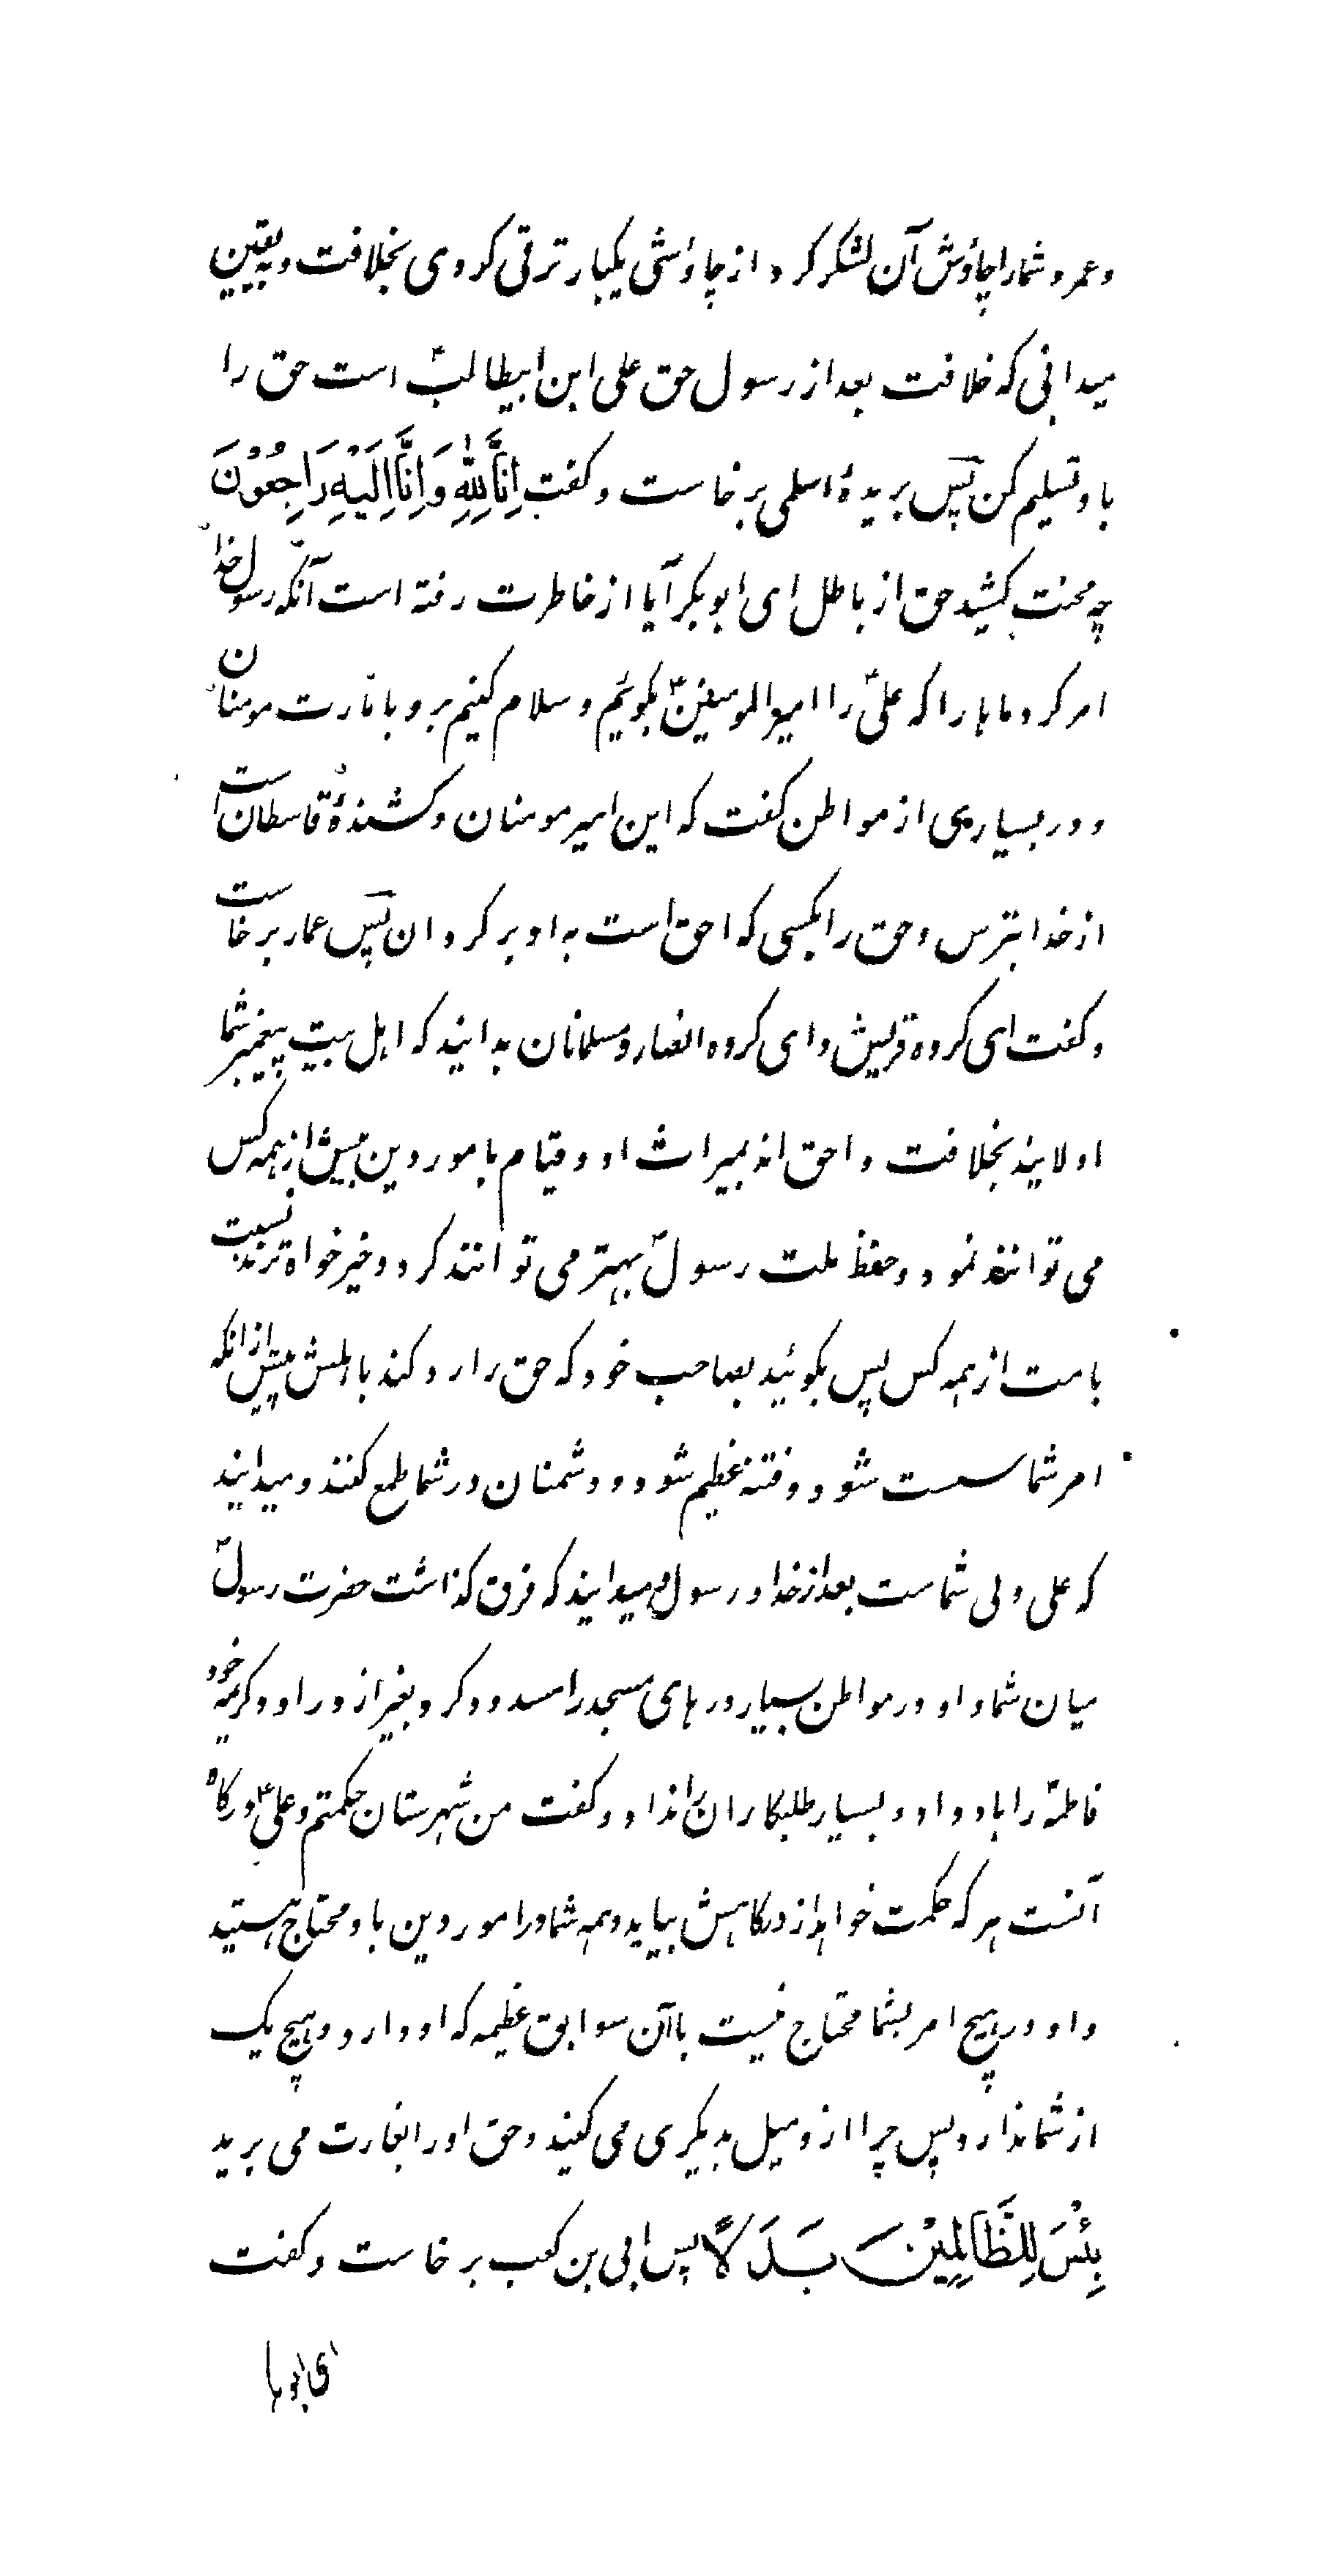 و عمرو شما را چاؤش آن لشکر کرد از چاؤشی یکبار ترقی کردی بخلافت و به یقین
میدانی که خلافت بعد از رسول حق علی ابن ابیطالبؑ است حق را
باو تسلیم کن پس بریدهٔ اسلمی برخاست و گفت اِنَّا لِلّٰهِ وَاِنَّا اِلَیْهِ رَاجِعُوْنَ
چه محنت کشید حق از باطل ای ابوبکر آیا از خاطرت رفته است آنکه رسول خداؐ
امر کرد ما ها را که علیؑ را امیرالمومنینؑ بگوئیم و سلام کنیم بر و بامارت مومنان
و در بسیاری از مواطن گفت که این امیر مومنان و کشندهٔ قاسطان است
از خدا بترس و حق را بکسی که احق است به او بر گردان پس عمار برخاست
و گفت ای گروه قریش و ای گروه انصار و مسلمانان بدانید که اهل بیت پیغمبر شما
اولایند بخلافت و احق اند بمیراث او و قیام بامور دین بیش از همه کس
می توانند نمود و حفظ ملت رسولؐ بهتر می توانند کرد و خیر خواه ترند نسبت
بامت از همه کس پس بگوئید بصاحب خود که حق را رد کند باهلش پیش از انکه
امر شما سست شود و فتنه عظیم شود و دشمنان در شما طمع کنند و میدانید
که علی ولی شماست بعد از خدا و رسول و میدانید که فرق گذاشت حضرت رسولؐ
میان شما و او در مواطن بسیار در های مسجد را مسدود کرد بغیر از در او و کریمه خود
فاطمهؑ را باو داد و بسیار طلبکاران را نداد و گفت من شهرستان حکمتم و علیؑ درگاه
آنست هر که حکمت خواهد از درگاهش بیاید و همه شما در امور دین باو محتاج هستید
و او در هیچ امر بشما محتاج نیست با آن سوابق عظیمه که او دارد و هیچ یک
از شما ندارد پس چرا از و میل بدیگری می کنید و حق او را بغارت می برید
بِئْسَ لِلظَّالِمِیْنَ بَدَلًا پس ابی بن کعب برخاست و گفت